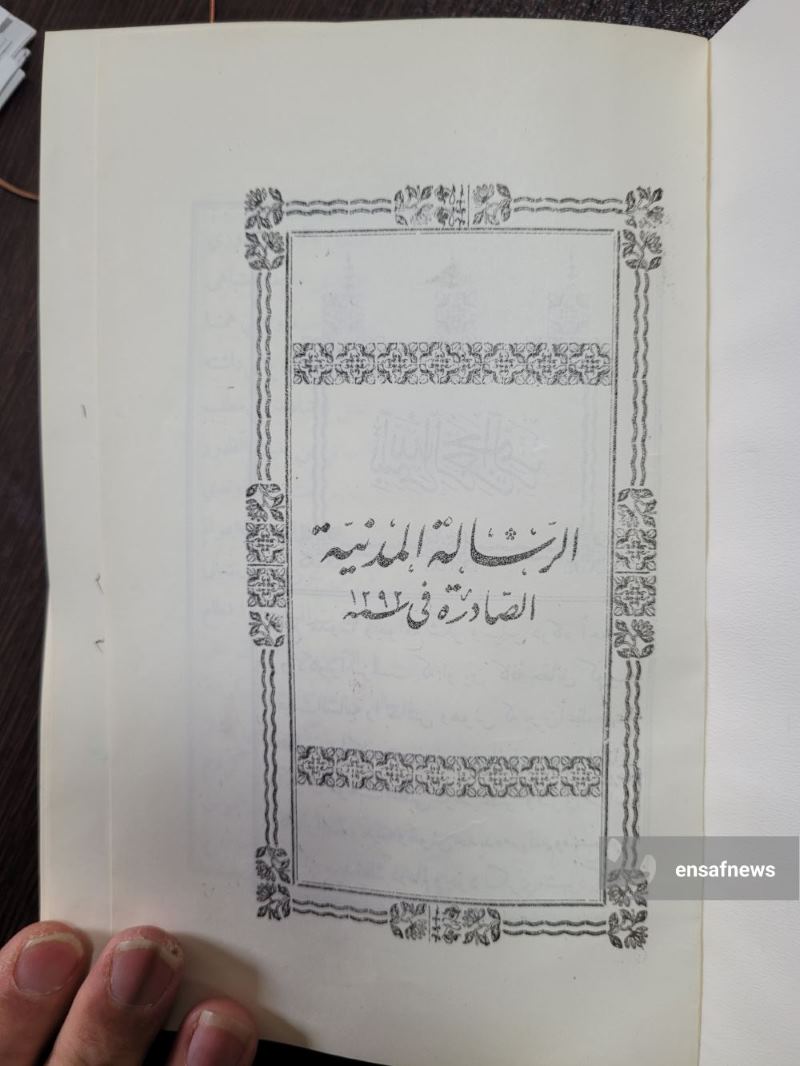 الرّسالة المدنيّة
الصّادرة فی سنه ١٢٩٢
ensafnews